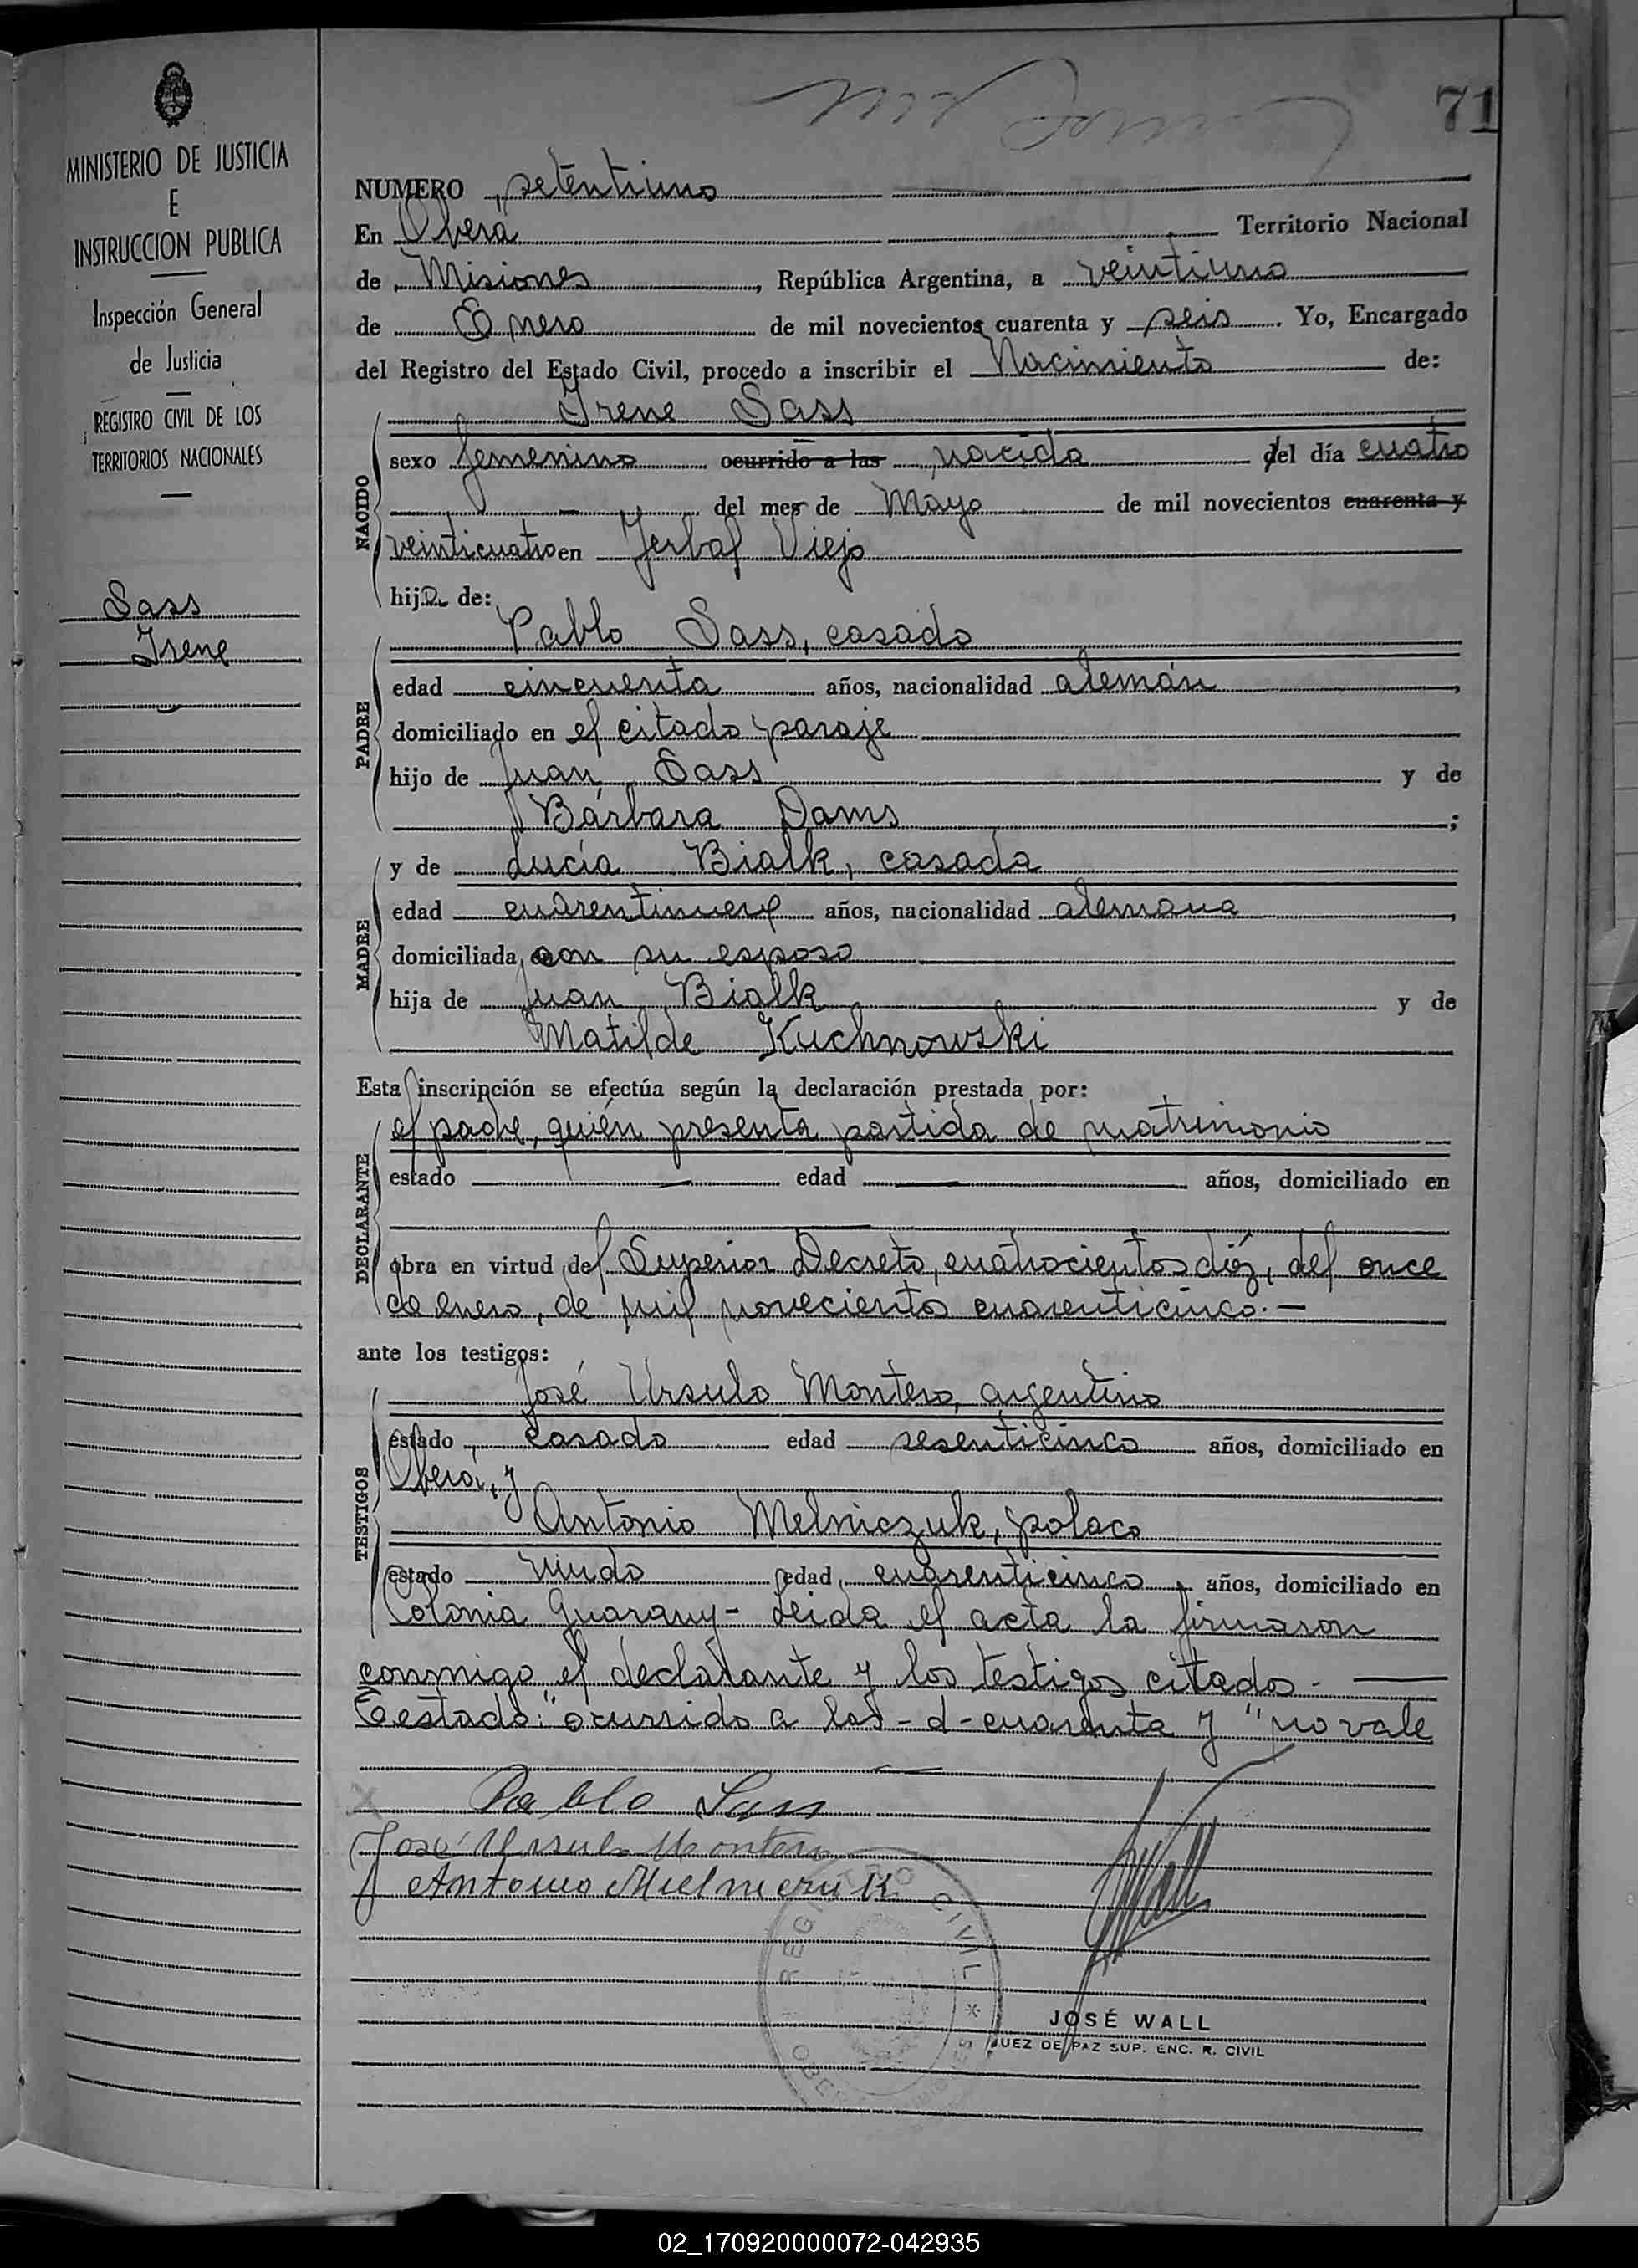 71
MINISTERIO DE JUSTICIA
E
INSTRUCCION PUBLICA
Inspección General
de Justicia
REGISTRO CIVIL DE LOS
TERRITORIOS NACIONALES
Sass
Irene
NUMERO setentiuno
En Oberá Territorio Nacional
de Misiones, República Argentina, a veintiuno
de Enero de mil novecientos cuarenta y seis. Yo, Encargado
del Registro del Estado Civil, procedo a inscribir el Nacimiento de:
NACIDO
Irene Sass
sexo femenino ocurrido a las nacida del día cuatro
del mes de Mayo de mil novecientos cuarenta y
veinticuatro en Yerbal Viejo
hija de:
PADRE
Pablo Sass, casado
edad cincuenta años, nacionalidad alemán,
domiciliado en el citado paraje
hijo de Juan Sass y de
Bárbara Dams;
MADRE
y de Lucía Bialk, casada
edad cuarentinueve años, nacionalidad alemana,
domiciliada con su esposo
hija de Juan Bialk y de
Matilde Kuchnowski
Esta inscripción se efectúa según la declaración prestada por:
DECLARANTE
el padre, quién presenta partida de matrimonio
estado — edad — años, domiciliado en
obra en virtud del Superior Decreto, cuatrocientos diéz, del once
de enero, de mil novecientos cuarenticinco.—
ante los testigos:
TESTIGOS
José Ursulo Montero, argentino
estado casado edad sesenticinco años, domiciliado en
Oberá, y
Antonio Melniczuk, polaco
estado viudo edad cuarenticinco, años, domiciliado en
Colonia Guarany- Leida el acta la firmaron
conmigo el declarante y los testigos citados. —
Testado: "ocurrido a las - d - cuarenta y" no vale
Pablo Sass
José Ursulo Montero
Antonio Mielniczuk
JWall
REGISTRO CIVIL * OBERÁ
JOSÉ WALL
JUEZ DE PAZ SUP. ENC. R. CIVIL
02_170920000072-042935